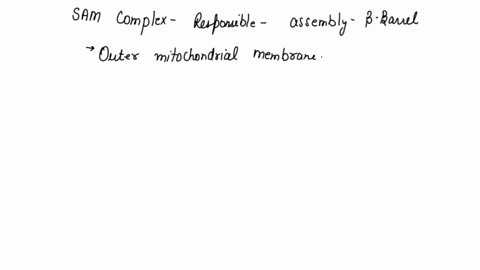 SAM Complex- Responsible- assembly- β-Barrel
→ Outer mitochondrial membrane.